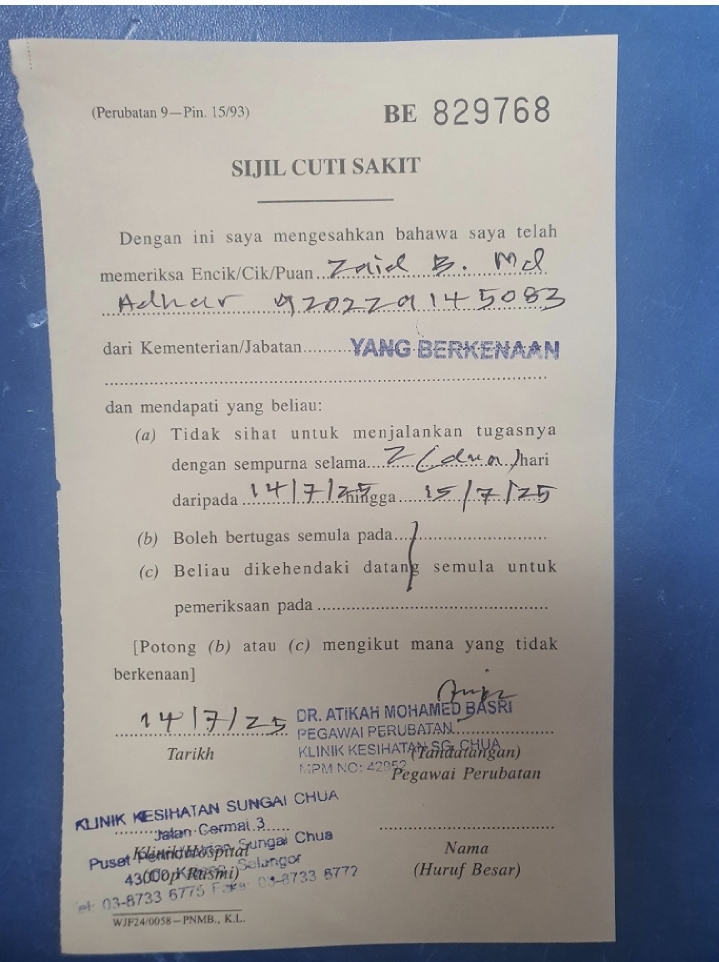 (Perubatan 9—Pin. 15/93) BE 829768
SIJIL CUTI SAKIT
Dengan ini saya mengesahkan bahawa saya telah
memeriksa Encik/Cik/Puan Zaid B. Md
Adhar 920229145083
dari Kementerian/Jabatan YANG BERKENAAN
dan mendapati yang beliau:
(a) Tidak sihat untuk menjalankan tugasnya
dengan sempurna selama 2 (dua) hari
daripada 14/7/25 hingga 15/7/25
(b) Boleh bertugas semula pada
(c) Beliau dikehendaki datang semula untuk
pemeriksaan pada
[Potong (b) atau (c) mengikut mana yang tidak
berkenaan]
14/7/25
Tarikh
DR. ATIKAH MOHAMED BASRI
PEGAWAI PERUBATAN
KLINIK KESIHATAN SG. CHUA
MPM NO: 42952
(Tandatangan)
Pegawai Perubatan
KLINIK KESIHATAN SUNGAI CHUA
Jalan Cermai 3
Klinik/Hospital
Pusat Sungai Chua
43000 Selangor
(Cop Rasmi)
Tel: 03-8733 6775 Faks: 03-8733 6772
Nama
(Huruf Besar)
WJF24/0058—PNMB., K.L.